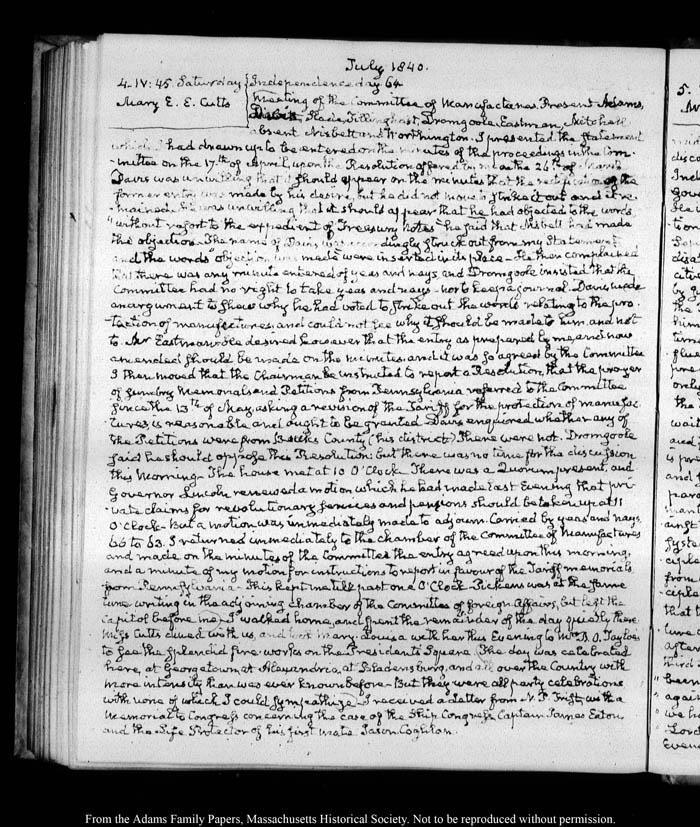 July 1840.
4. IV:45. Saturday Independence day 64
Mary E. E. Cutts Meeting of the Committee of Manufactures. Present Adams,
Davis, Slade, Tillinghast, Dromgoole, Eastman, Mitchell
absent Nisbet and Worthington. I presented the Statement
which I had drawn up to be entered on the minutes of the proceedings in the Com-
mittee on the 17th of April, upon the Resolution offered by me the 26th of March
Davis was unwilling that it should appear on the minutes that the of the
former entry was made by his desire, but he did not move to strike it out and it re-
mained. He was unwilling that it should appear that he had objected to the words
"without resort to the expedient of Treasury notes" he said that Nisbet had made
the objection. The name of Davis was accordingly struck out from my Statement
and the words "objection was made" were inserted in its place. He then complained
that there was any minute entered of yeas and nays, and Dromgoole insisted that the
Committee had no right to take yeas and nays nor to keep a journal. Davis made
an argument to shew why he had voted to strike out the words relating to the pro-
tection of manufactures, and could not see why it should be made to him, and not
to Mr Eastman who desired however that the entry as prepared by me, and now
amended should be made on the minutes, and it was so agreed by the Committee
I then moved that the Chairman be instructed to report a Resolution, that the prayer
of sundry Memorials and Petitions from Pennsylvania referred to the Committee
since the 13th of May, asking a revision of the Tariff for the protection of manufac-
tures, is reasonable and ought to be granted. Davis enquired whether any of
the Petitions were from Bucks County (his district) There were not. Dromgoole
said he should oppose this Resolution: but there was no time for the discussion
this Morning. The house met at 10 O'Clock. There was a Quorum present, and
Governor Lincoln renewed a motion which he had made last Evening that pri-
vate claims for revolutionary services and pensions should be taken up at 11
O'Clock. But a motion was immediately made to adjourn. Carried by yeas and nays.
66 to 63. I returned immediately to the chamber of the Committee of Manufactures
and made on the minutes of the Committee the entry agreed upon this morning,
and a minute of my motion for instructions to report in favour of the Tariff memorials
from Pennsylvania. This kept me till past one O'Clock. Pickens was at the same
time writing in the adjoining chamber of the Committee of foreign Affairs, but left the
Capitol before me. I walked home, and spent the remainder of the day quietly there
Miss Cutts dined with us, and took Mary Louisa with her this Evening to Mrs B. O. Tayloe's
to see the splendid fire-works on the President's Square. The day was celebrated
here, at Georgetown, at Alexandria, at Bladensburg, and all over the Country with
more intensity than was ever known before. But they were all party celebrations
with none of which I could sympathize. I received a Letter from N. P. Trist, with a
Memorial to Congress concerning the case of the Ship Congress, Captain James Eaton
and the Life Protector of his first mate Jason Coghlan.
From the Adams Family Papers, Massachusetts Historical Society. Not to be reproduced without permission.